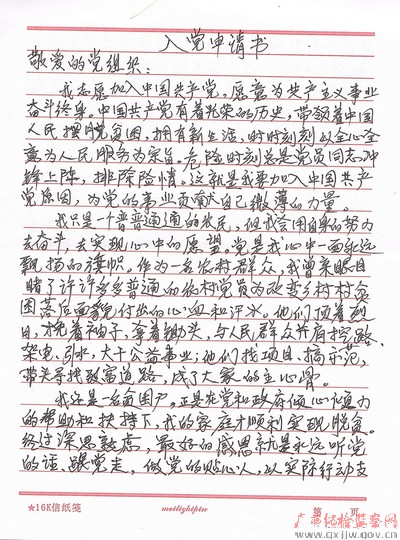 入党申请书
敬爱的党组织：
我志愿加入中国共产党，愿意为共产主义事业
奋斗终身。中国共产党有着光荣的历史，带领着中国
人民摆脱贫困，拥有新生活，时时刻刻以全心全
意为人民服务为宗旨。危险时刻总是党员同志冲
锋上阵，排除险情。这就是我要加入中国共产
党原因，为党的事业贡献自己微薄的力量。
我只是一个普普通通的农民，但我会用自身的努力
去奋斗，去实现心中的愿望。党是我心中一面永远
飘扬的旗帜。作为一名农村群众，我曾亲眼目
睹了许许多多普通的农村党员为改变乡村村贫
困落后面貌付出的心血和汗水。他们顶着烈
日，挽着袖子，拿着锄头，与人民群众并肩挖路、
架电、引水，大干公益事业；他们找项目、搞示范，
带头寻找致富道路，成了大家的主心骨。
我还是一名贫困户，正是党和政府倾心倾力
的帮助和扶持下，我的家庭才顺利实现脱贫。
经过深思熟虑，最好的感恩就是永远听党
的话，跟党走，做党的贴心人，以实际行动支
★16K信纸笺 第 页
广西纪检监察网
www.gxjjw.gov.cn